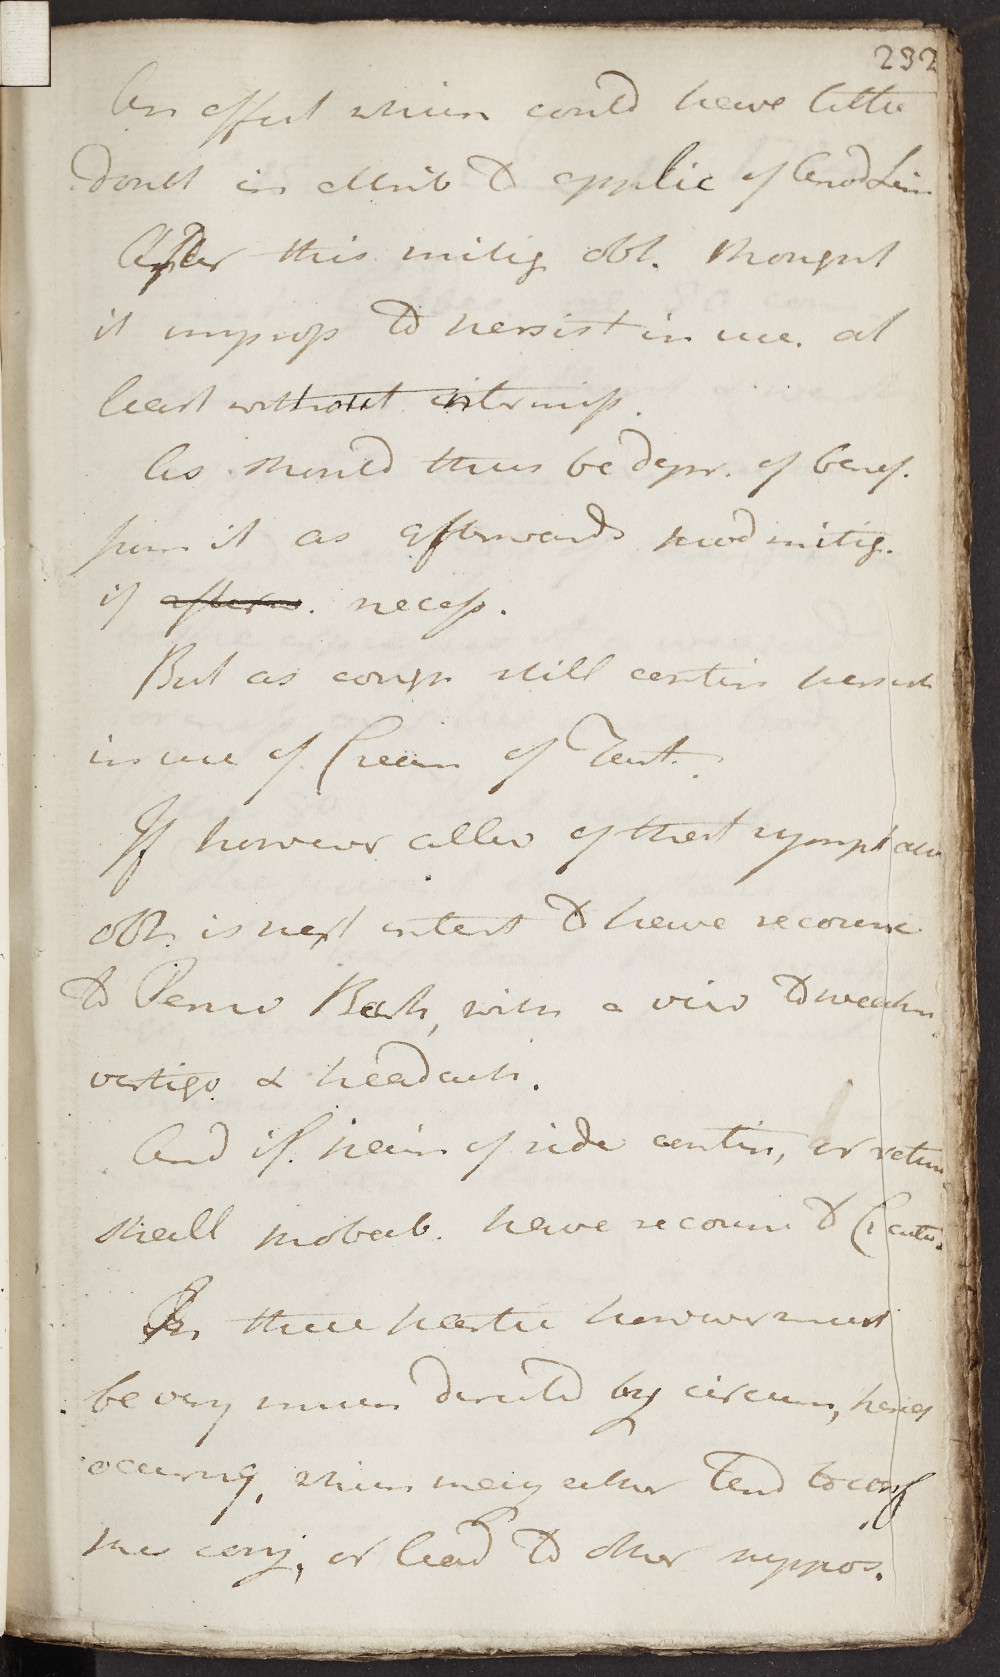 232
An effect which could have little
doubt in attrib to applic of Anod Lin
After this mitig obt. thought
it improp to persist in use. at
least without intermiss.
As should thus be depr. of benef.
from it as afterwards prod mitig.
if afterw. necess.
But as cough still contin persist
in use of Cream of Tart.
If however allev of these sympt are
obt. is next intent to have recourse
to Peruv Bark, with a view to weakn
vertigo & headach.
And if pain of side contin, or return
shall probab. have recourse to Canthar.
In these partic however must
be very much directed by circum, hereaf
occurring, which may either tend to conf
the conj, or lead to other suppos.